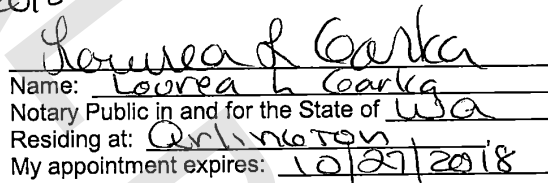 Lourea L Garka
Name: Lourea L Garka
Notary Public in and for the State of WA
Residing at: Arlington
My appointment expires: 10/27/2018